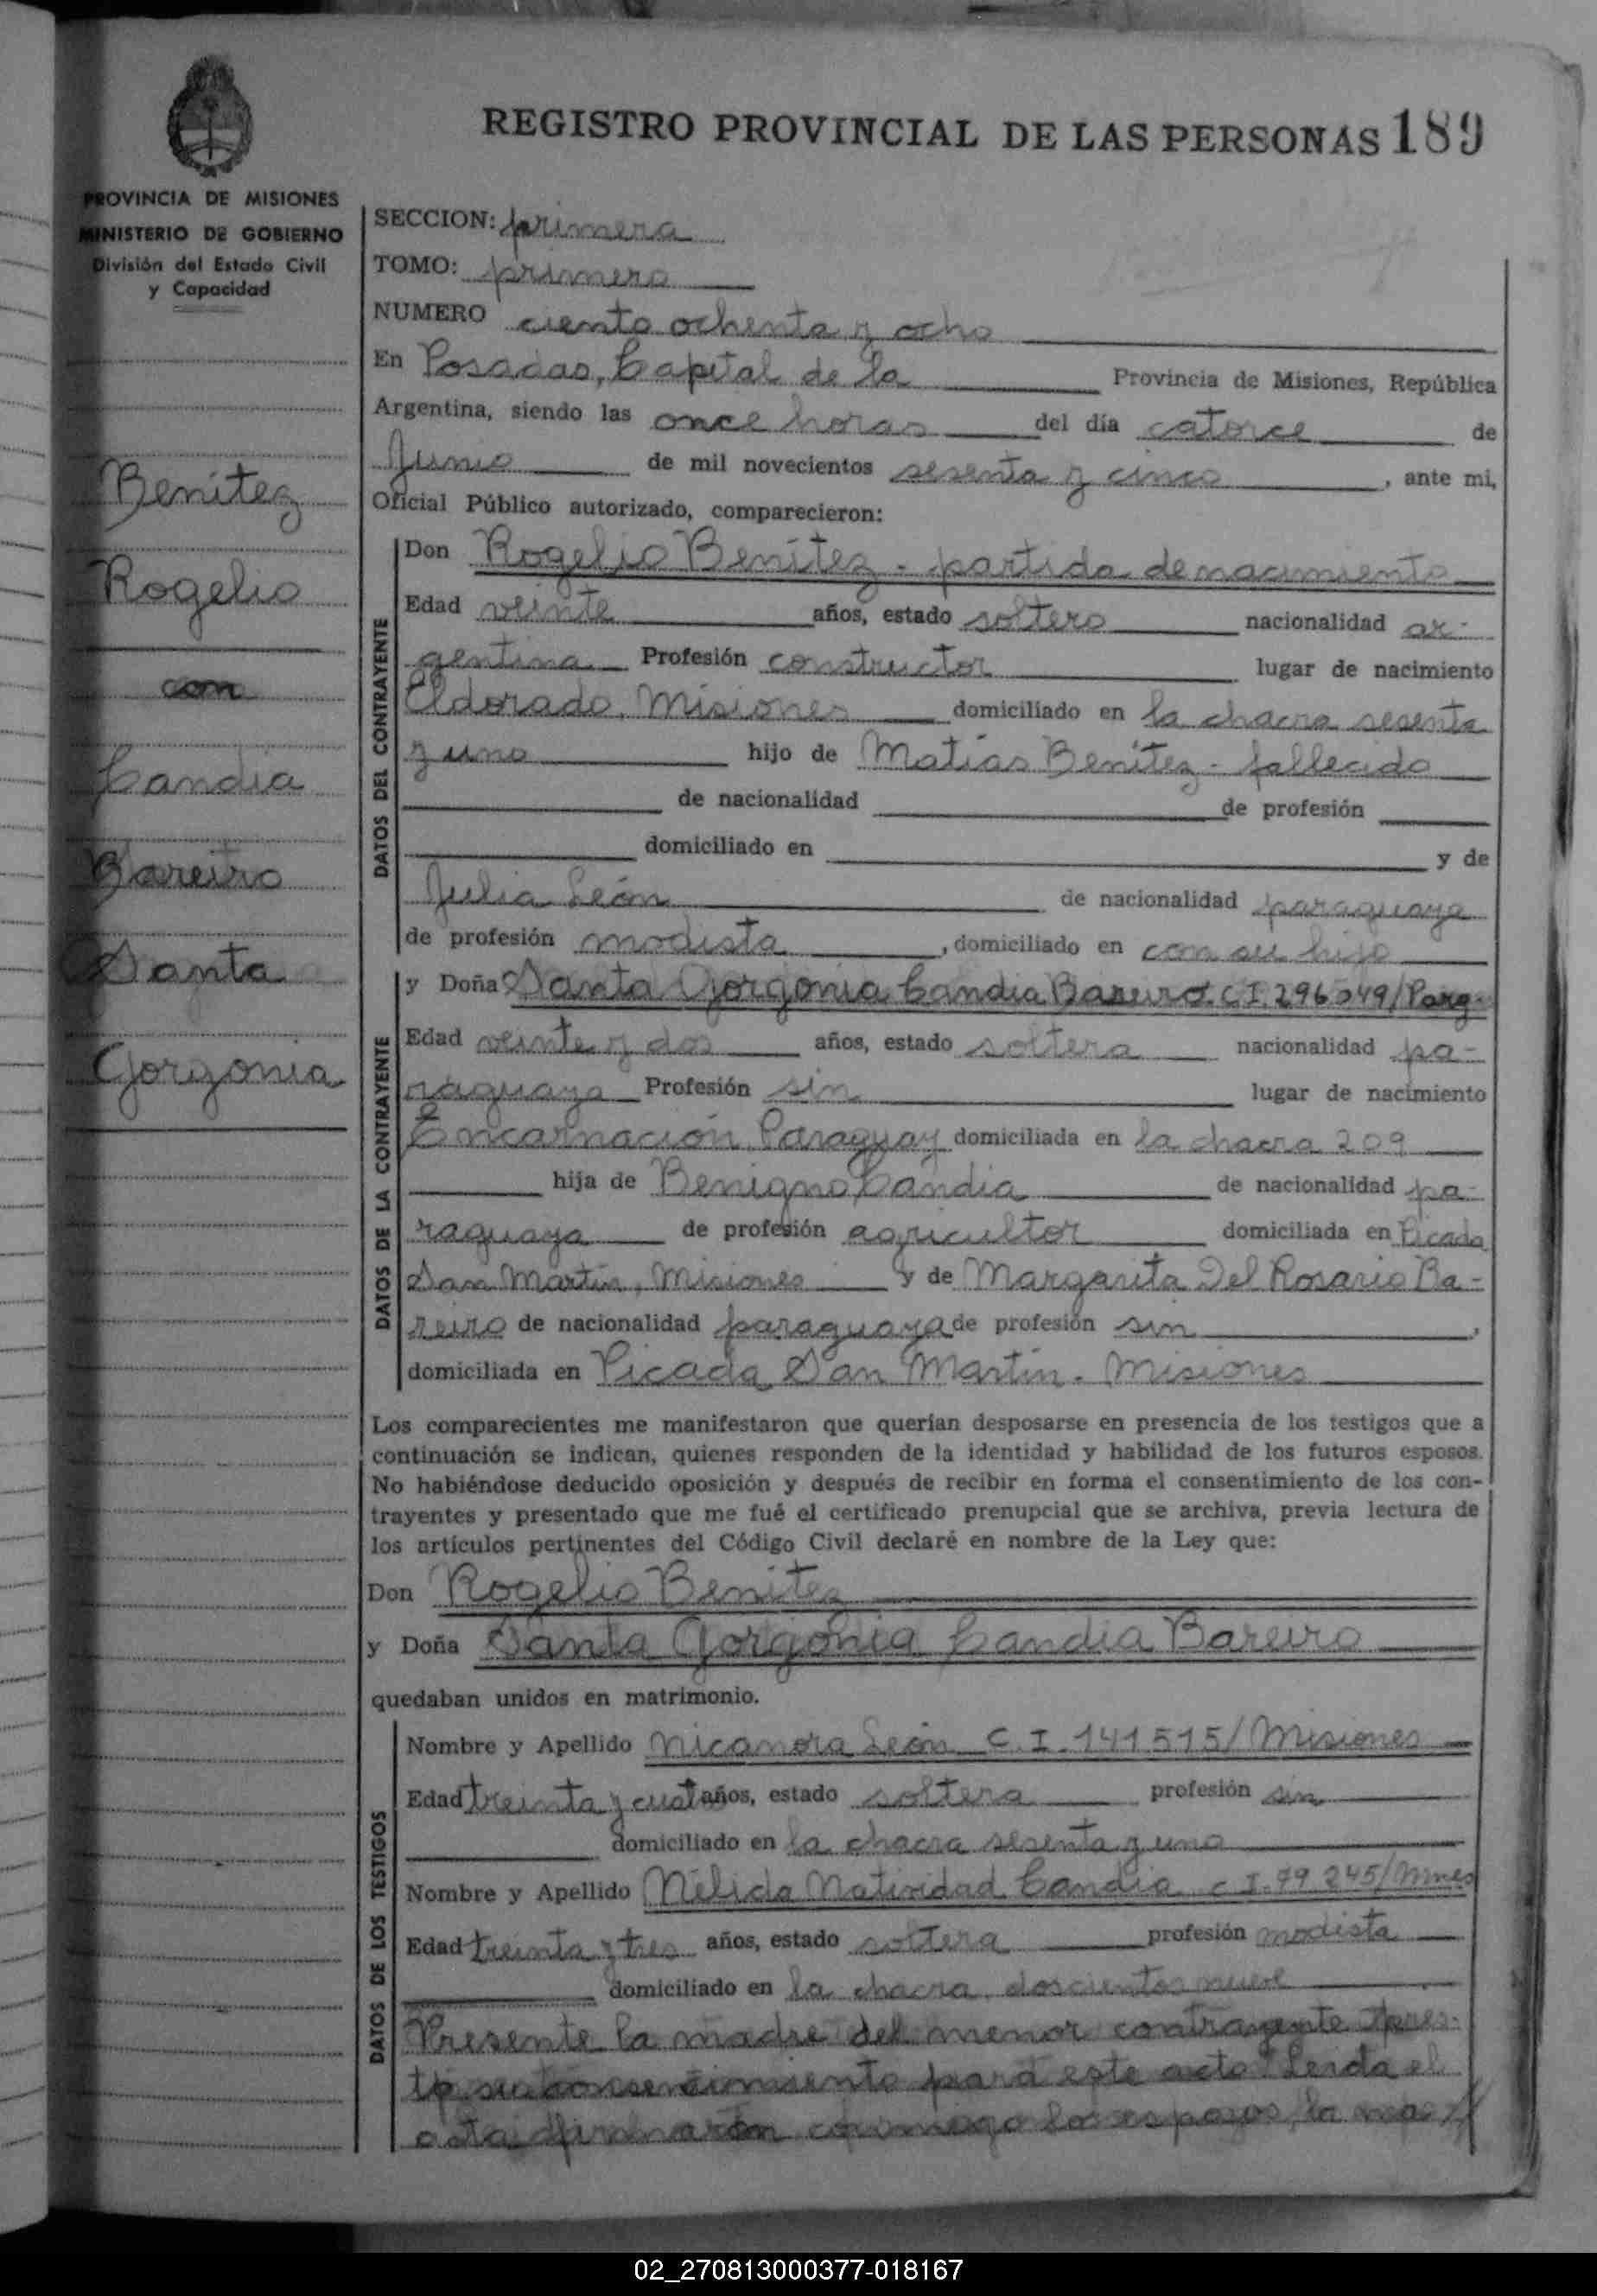 REGISTRO PROVINCIAL DE LAS PERSONAS 189
PROVINCIA DE MISIONES
MINISTERIO DE GOBIERNO
División del Estado Civil
y Capacidad
Benítez
Rogelio
con
Candia
Bareiro
Santa
Gorgonia
SECCION: primera
TOMO: primero
NUMERO ciento ochenta y ocho
En Posadas, Capital de la Provincia de Misiones, República
Argentina, siendo las once horas del día catorce de
Junio de mil novecientos sesenta y cinco, ante mi,
Oficial Público autorizado, comparecieron:
DATOS DEL CONTRAYENTE
Don Rogelio Benítez - partida de nacimiento
Edad veinte años, estado soltero nacionalidad ar-
gentina Profesión constructor lugar de nacimiento
Eldorado, Misiones domiciliado en la chacra sesenta
y uno hijo de Matías Benítez - fallecido
de nacionalidad de profesión
domiciliado en y de
Julia León de nacionalidad paraguaya
de profesión modista, domiciliado en con su hijo
DATOS DE LA CONTRAYENTE
y Doña Santa Gorgonia Candia Bareiro. C.I. 296.049/Parg.
Edad veinte y dos años, estado soltera nacionalidad pa-
raguaya Profesión sin lugar de nacimiento
Encarnación, Paraguay domiciliada en la chacra 209
hija de Benigno Candia de nacionalidad pa-
raguaya de profesión agricultor domiciliada en Picada
San Martín, Misiones y de Margarita Del Rosario Ba-
reiro de nacionalidad paraguaya de profesión sin,
domiciliada en Picada San Martín. Misiones
Los comparecientes me manifestaron que querían desposarse en presencia de los testigos que a
continuación se indican, quienes responden de la identidad y habilidad de los futuros esposos.
No habiéndose deducido oposición y después de recibir en forma el consentimiento de los con-
trayentes y presentado que me fué el certificado prenupcial que se archiva, previa lectura de
los artículos pertinentes del Código Civil declaré en nombre de la Ley que:
Don Rogelio Benítez
y Doña Santa Gorgonia Candia Bareiro
quedaban unidos en matrimonio.
DATOS DE LOS TESTIGOS
Nombre y Apellido Nicanora León C.I. 141515/Misiones
Edad treinta y cuatro años, estado soltera profesión sin
domiciliado en la chacra sesenta y uno
Nombre y Apellido Nélida Natividad Candia C.I. 79.245/Mnes
Edad treinta y tres años, estado soltera profesión modista
domiciliado en la chacra doscientos nueve
Presente la madre del menor contrayente pres-
tó su consentimiento para este acto. Leída el
acta firmaron conmigo los esposos, la
02_270813000377-018167